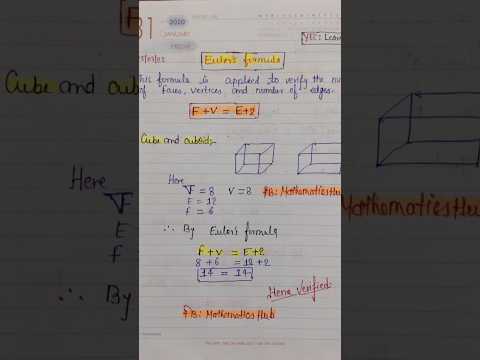 31
2020
JANUARY
FRIDAY
YT: Learn
Euler's formula
This formula is applied to verify the nu
of faces, vertices and number of edges.
F+V = E+2
Cube and cuboid:-
Here
V = 8 V = 8
E = 12
F = 6
FB: MathematicsHub
∴ By Euler's formula
F+V = E+2
8+6 = 12+2
14 = 14
Hence Verified
FB: MathematicsHub
Cube and cub
Here
V
E =
f
∴ By
MathematicsHu